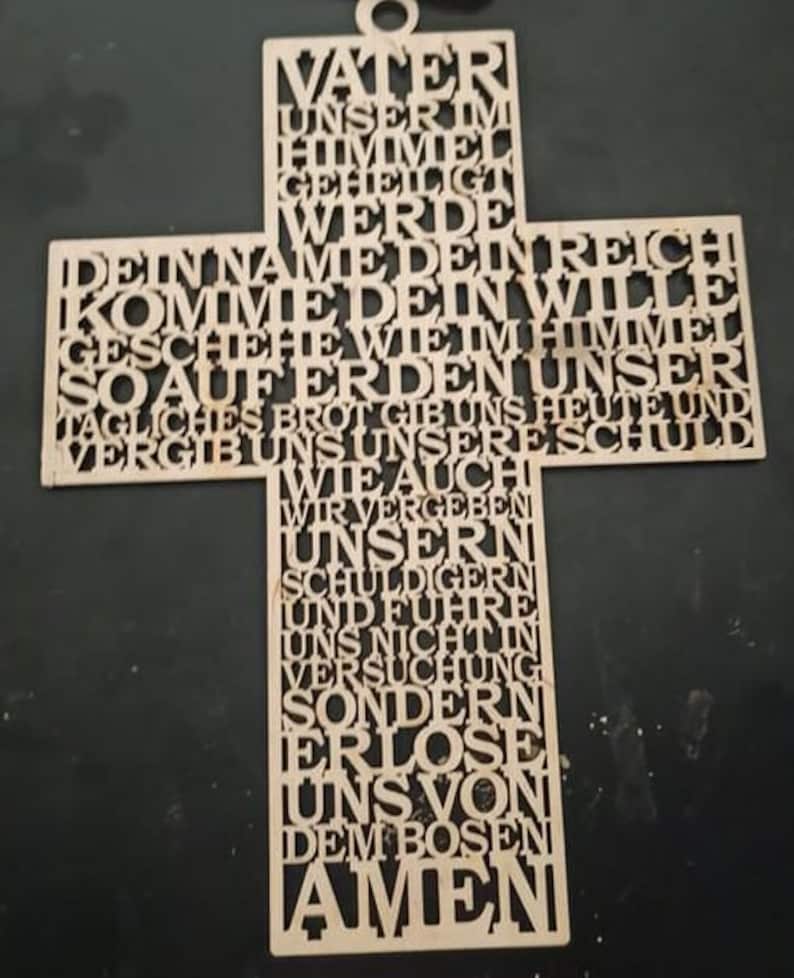 VATER
UNSER IM
HIMMEL
GEHEILIGT
WERDE
DEIN NAME DEIN REICH
KOMME DEIN WILLE
GESCHEHE WIE IM HIMMEL
SO AUF ERDEN UNSER
TAGLICHES BROT GIB UNS HEUTE UND
VERGIB UNS UNSERE SCHULD
WIE AUCH
WIR VERGEBEN
UNSERN
SCHULDIGERN
UND FUHRE
UNS NICHT IN
VERSUCHUNG
SONDERN
ERLOSE
UNS VON
DEM BOSEN
AMEN